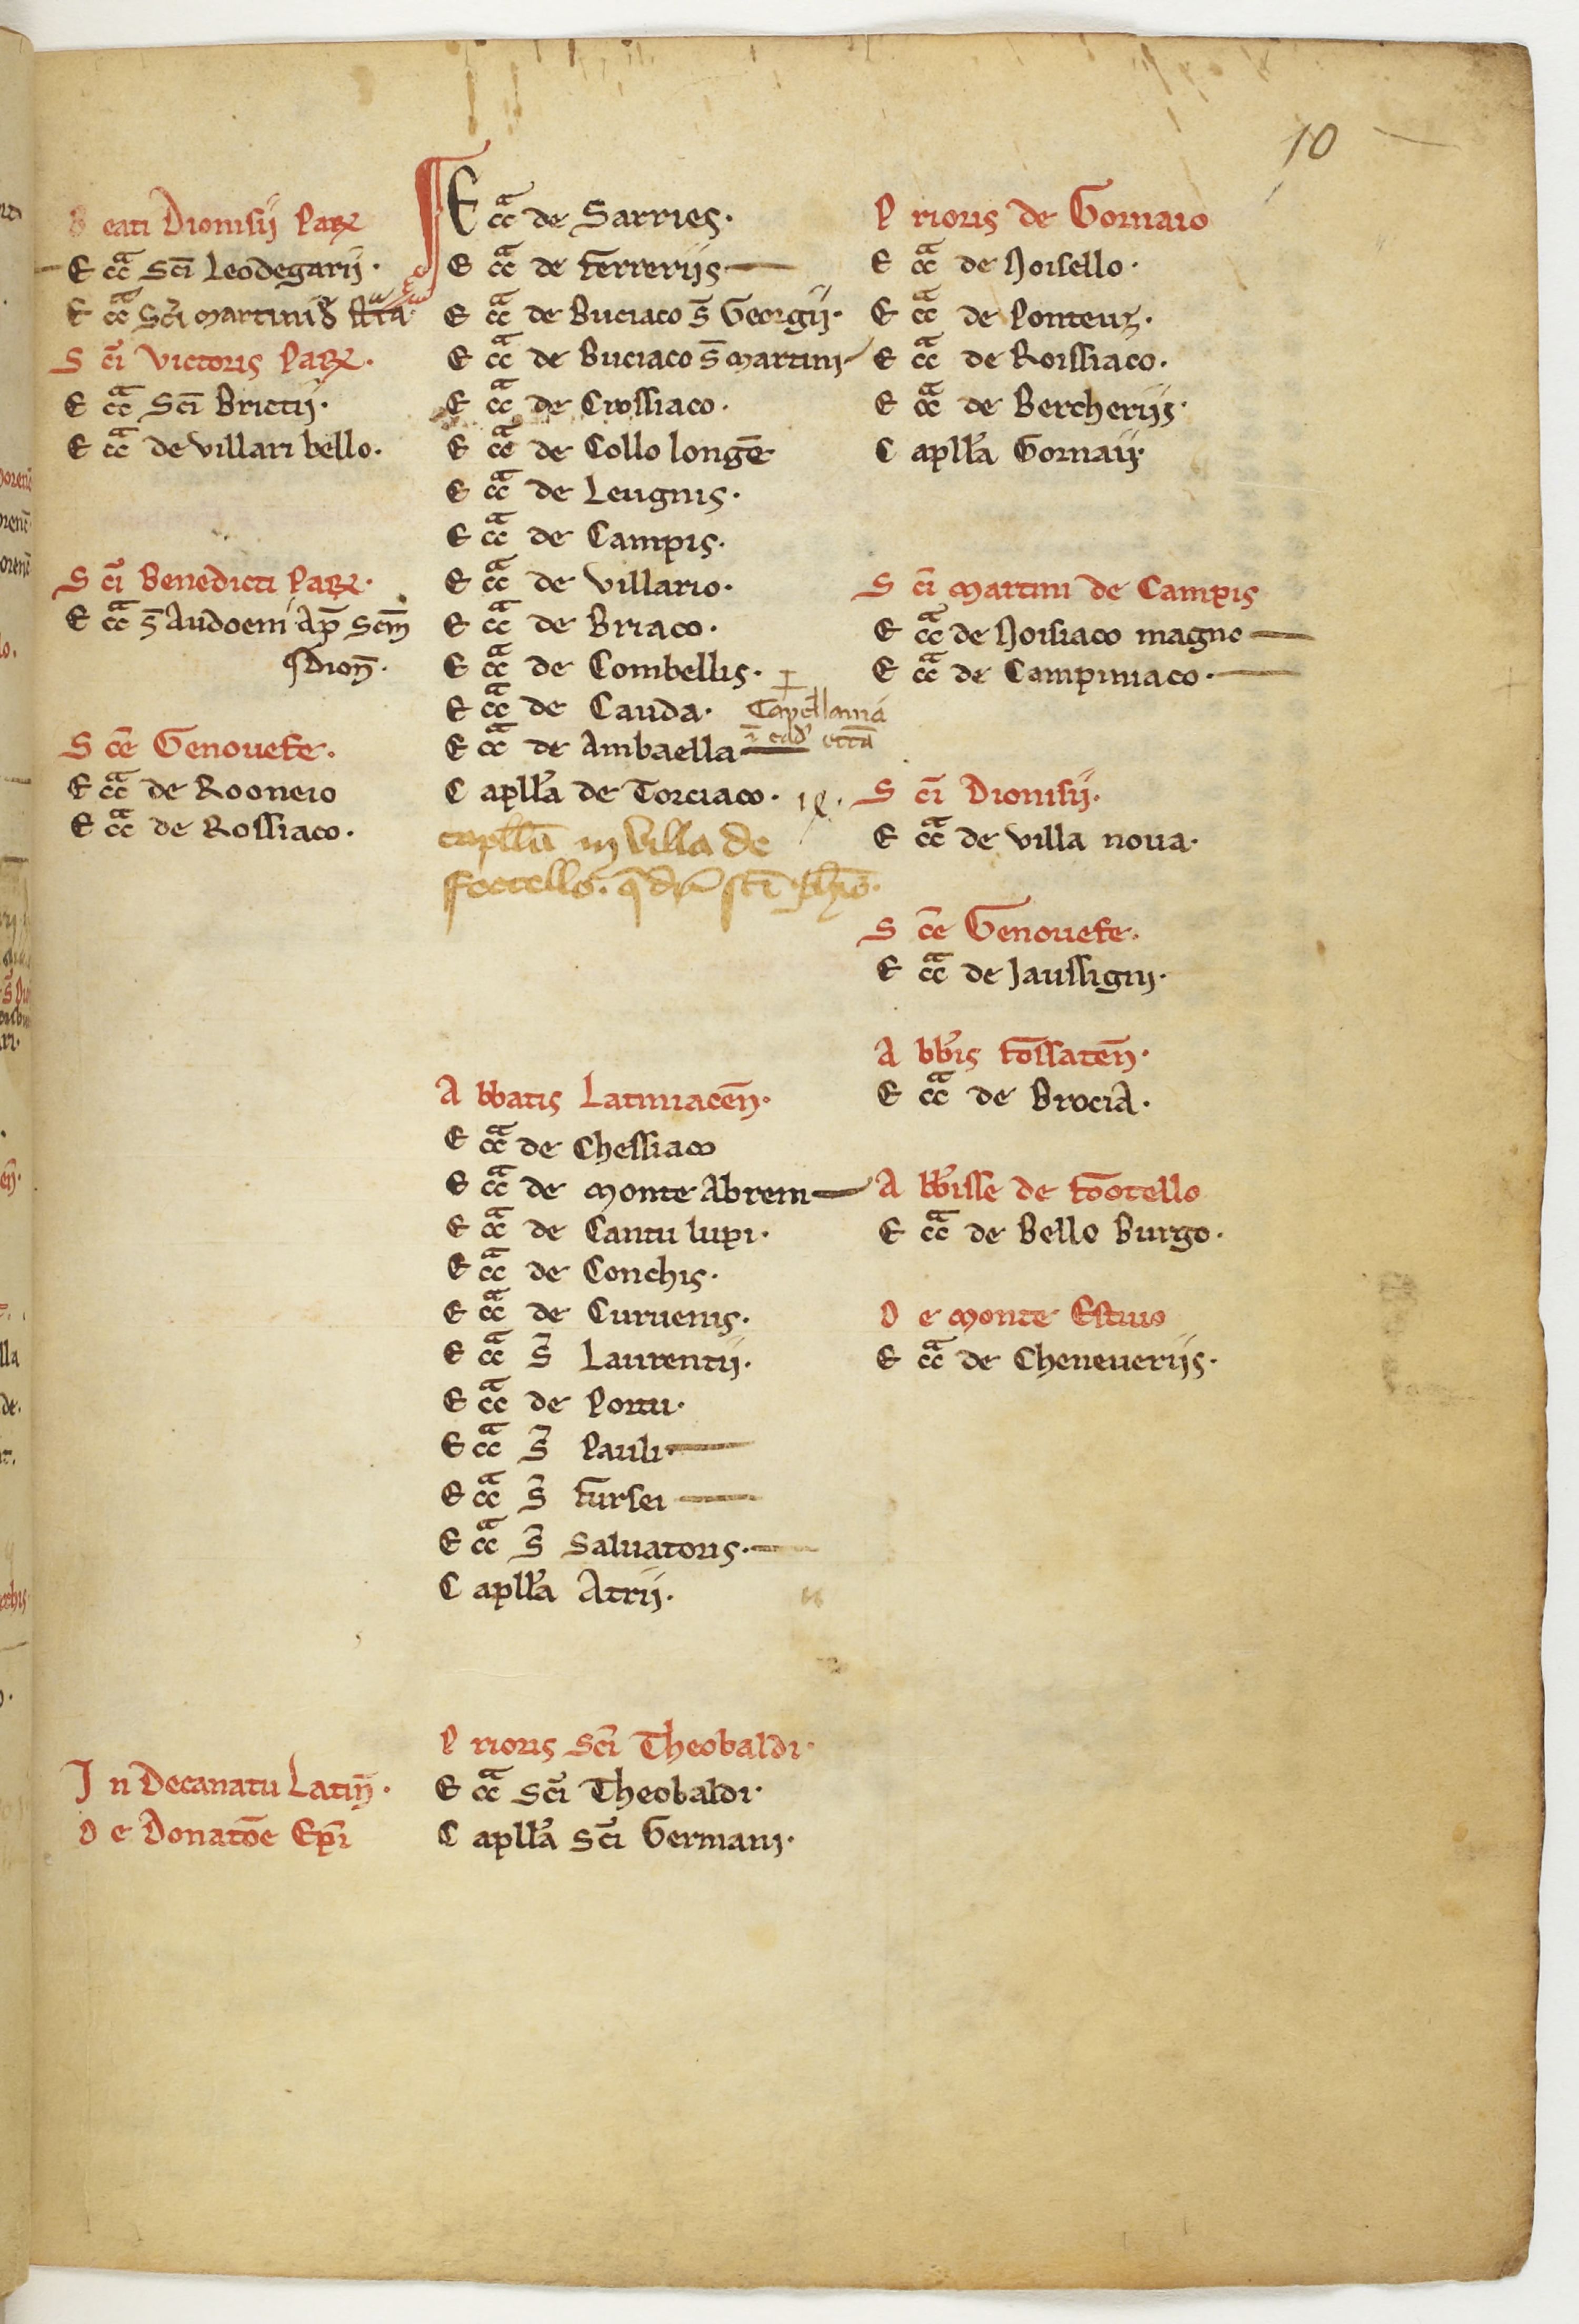 10
B eati Dionisij Par̄
E cca Sci Leodegarij.
E cca Sci Martini
S ci Victoris Par̄.
E cca Sci Brictij.
E cca de villari bello.
S ci Benedicti Par̄.
E cca S̄ Audoeni Ap̄ Scm̄
Dion̄.
S ce Genouefe.
E cca de Rooneio
E cca de Rossiaco.
I n Decanatu Latin̄.
D e Donatōe Epi
E cca de Sarries.
E cca de ferrerijs
E cca de Buciaco S̄ Georgij.
E cca de Buciaco S̄ Martini
E cca de Crossiaco.
E cca de Collo longe
E cca de Leugnis.
E cca de Campis.
E cca de Villario.
E cca de Briaco.
E cca de Combellis.
E cca de Cauda.
Capellania
ī ead' ecca
E cca de Ambaella
C aplla de Torciaco.
capllā in villa de
A bbatis Latiniacen̄.
E cca de Chessiaco
E cca de Monte Abrem
E cca de Cantu lupi.
E cca de Conchis.
E cca de Curuenis.
E cca S̄ Laurentij.
E cca de Portu.
E cca S̄ Pauli
E cca S̄ fursei
E cca S̄ Saluatoris.
C aplla Atrij.
P rioris Sci Theobaldi.
E cca Sci Theobaldi.
C aplla Sci Germani.
P rioris de Gornaio
E cca de Noisello.
E cca de Ponteus.
E cca de Roissiaco.
E cca de Bercherijs.
C aplla Gornaij.
S ci Martini de Campis
E cca de Noisiaco magno
E cca de Campiniaco.
S ci Dionisij.
E cca de Villa noua.
S ce Genouefe.
E cca de Jaussigni.
A bbis fossaten̄.
E cca de Brocia.
A bbisse de footello
E cca de Bello Burgo.
D e Monte Estiuo
E cca de Cheneuerijs.